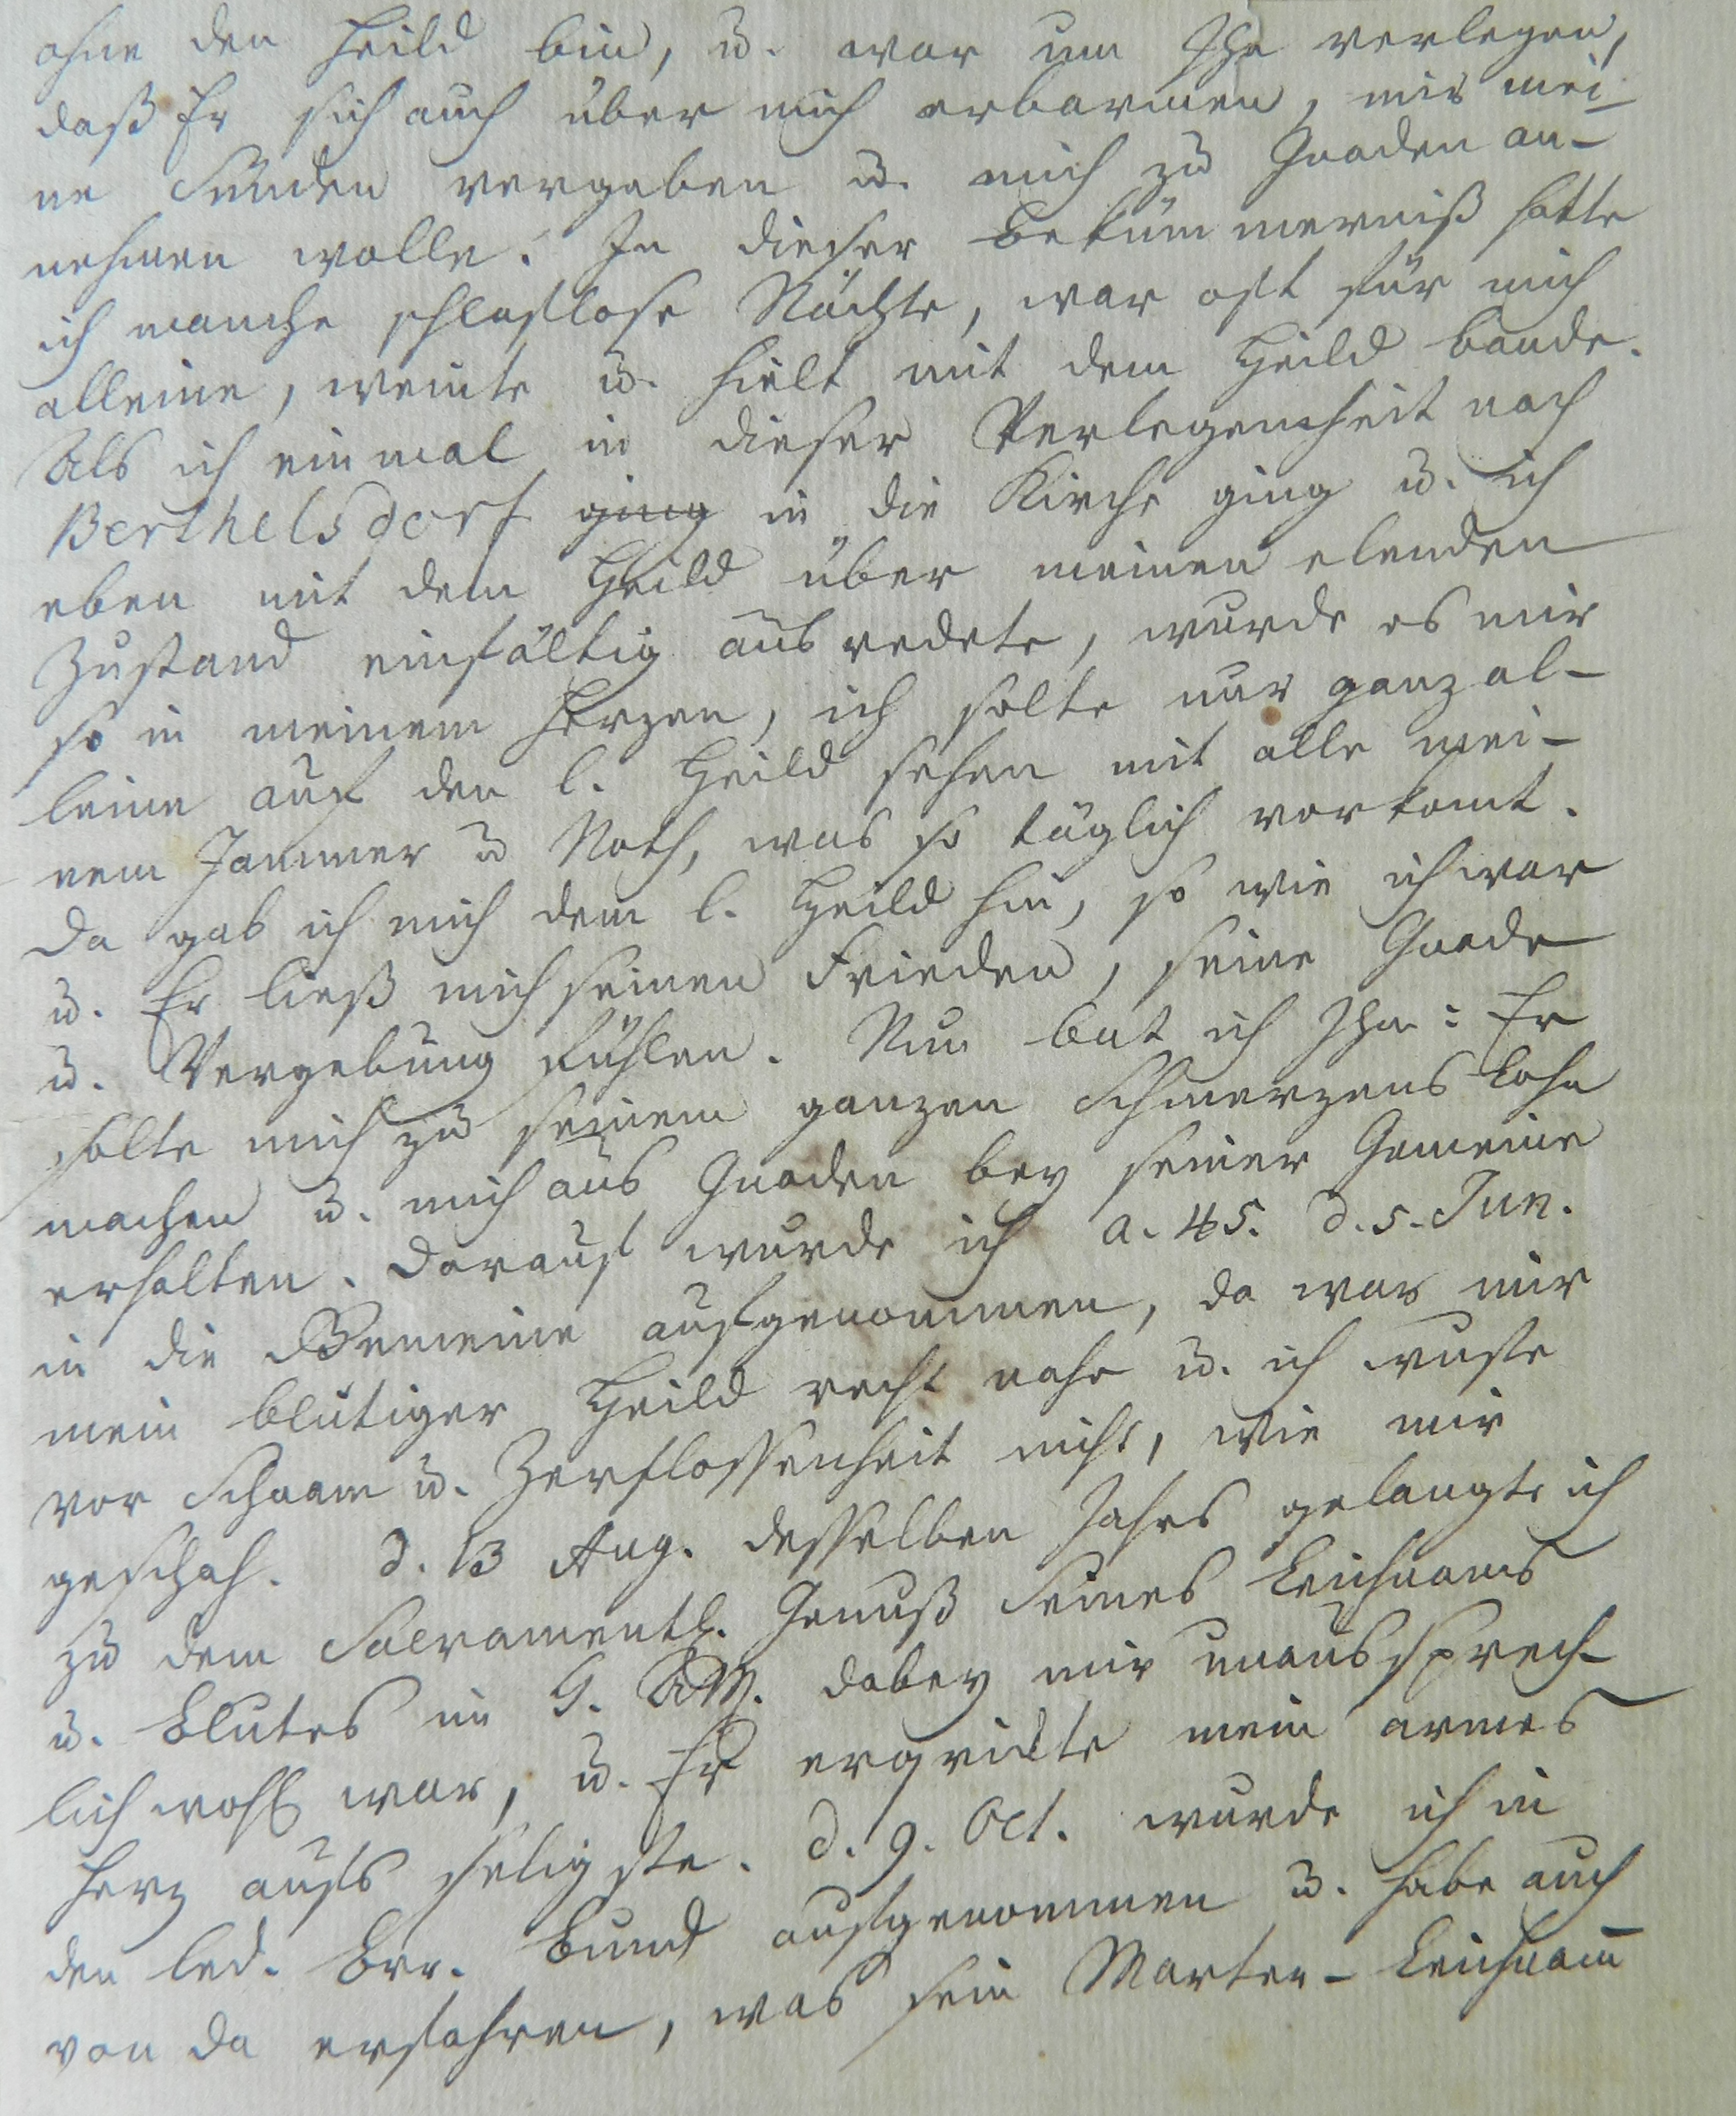 ohne den Heild bin, u. war um Ihn verlegen,
daß Er sich auch über mich erbarmen, mir mei-
ne Sünden vergeben u. mich zu Gnaden an-
nehmen wolle. In dieser Bekümmerniß hatte
ich manche schlaflose Nächte, war oft für mich
alleine, weinte u. hielt mit dem Heild bande.
Als ich einmal in dieser Verlegenheit nach
Berthelsdorf ging in die Kirche ging u. ich
eben mit dem Heild über meinen elenden
Zustand einfältig ausredete, wurde es mir
so in meinem Herzen, ich solte nur ganz al-
leine auf den l. Heild sehen mit alle mei-
nem Jammer u Noth, was so täglich vorkomt.
Da gab ich mich dem l. Heild hin, so wie ich war
u. Er ließ mich seinen Frieden, seine Gnade
u. Vergebung fühlen. Nun bat ich Ihn: Er
solte mich zu seinem ganzen Schmerzens Lohn
machen u. mich aus Gnaden bey seiner Gemeine
erhalten. Darauf wurde ich a. 45. d. 5. Jun.
in die Gemeine aufgenommen, da war mir
mein blutiger Heild recht nahe u. ich wuste
vor Schaam u. Zerflossenheit nicht, wie mir
geschah. d. 13 Aug. desselben Jahrs gelangte ich
zu dem Sacramentl. Genuß Seines Leichnams
u. Blutes im H. AM. dabey mir unaussprech-
lich wohl war, u. Er erquickte mein armes
Herz aufs seligste. d. 9. Oct. wurde ich in
den led. Brr. Bund aufgenommen u. habe auch
von da erfahren, was sein Marter-Leichnam̅